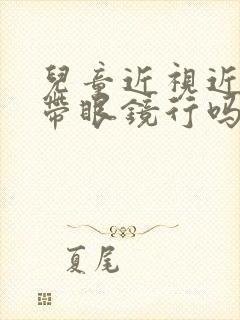 兒童近視近
帶眼鏡行吗
夏尾